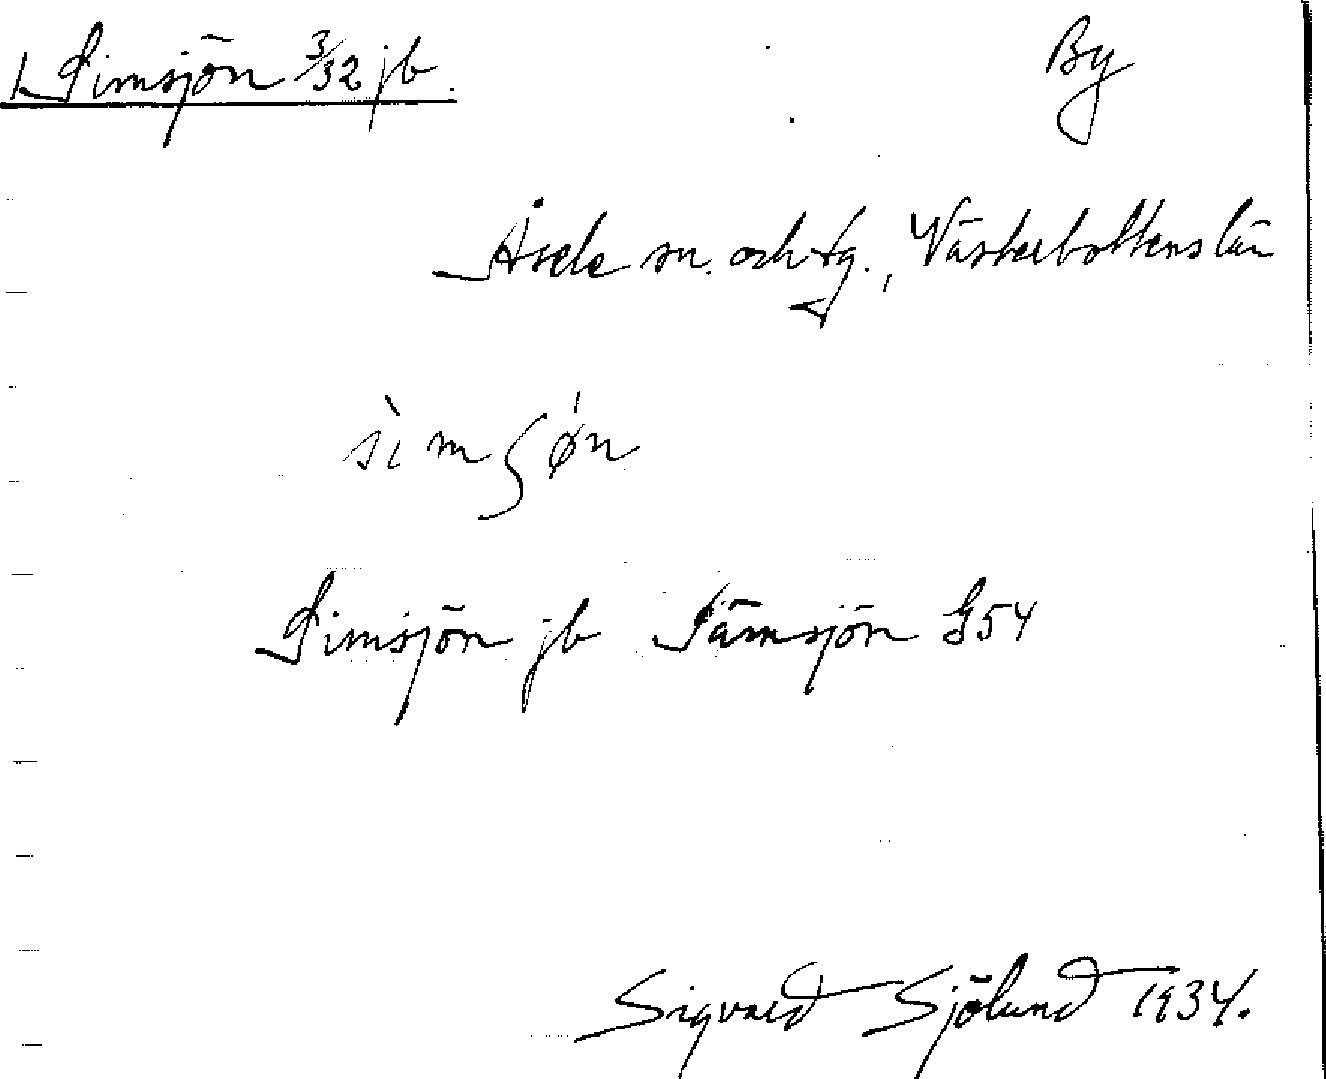 Simsjön 3/32 jb. By
Åsele sn. och tg., Västerbottens län
sìmʃøn
Simsjön jb Sämsjön G54
Sigvard Sjölund 1934.